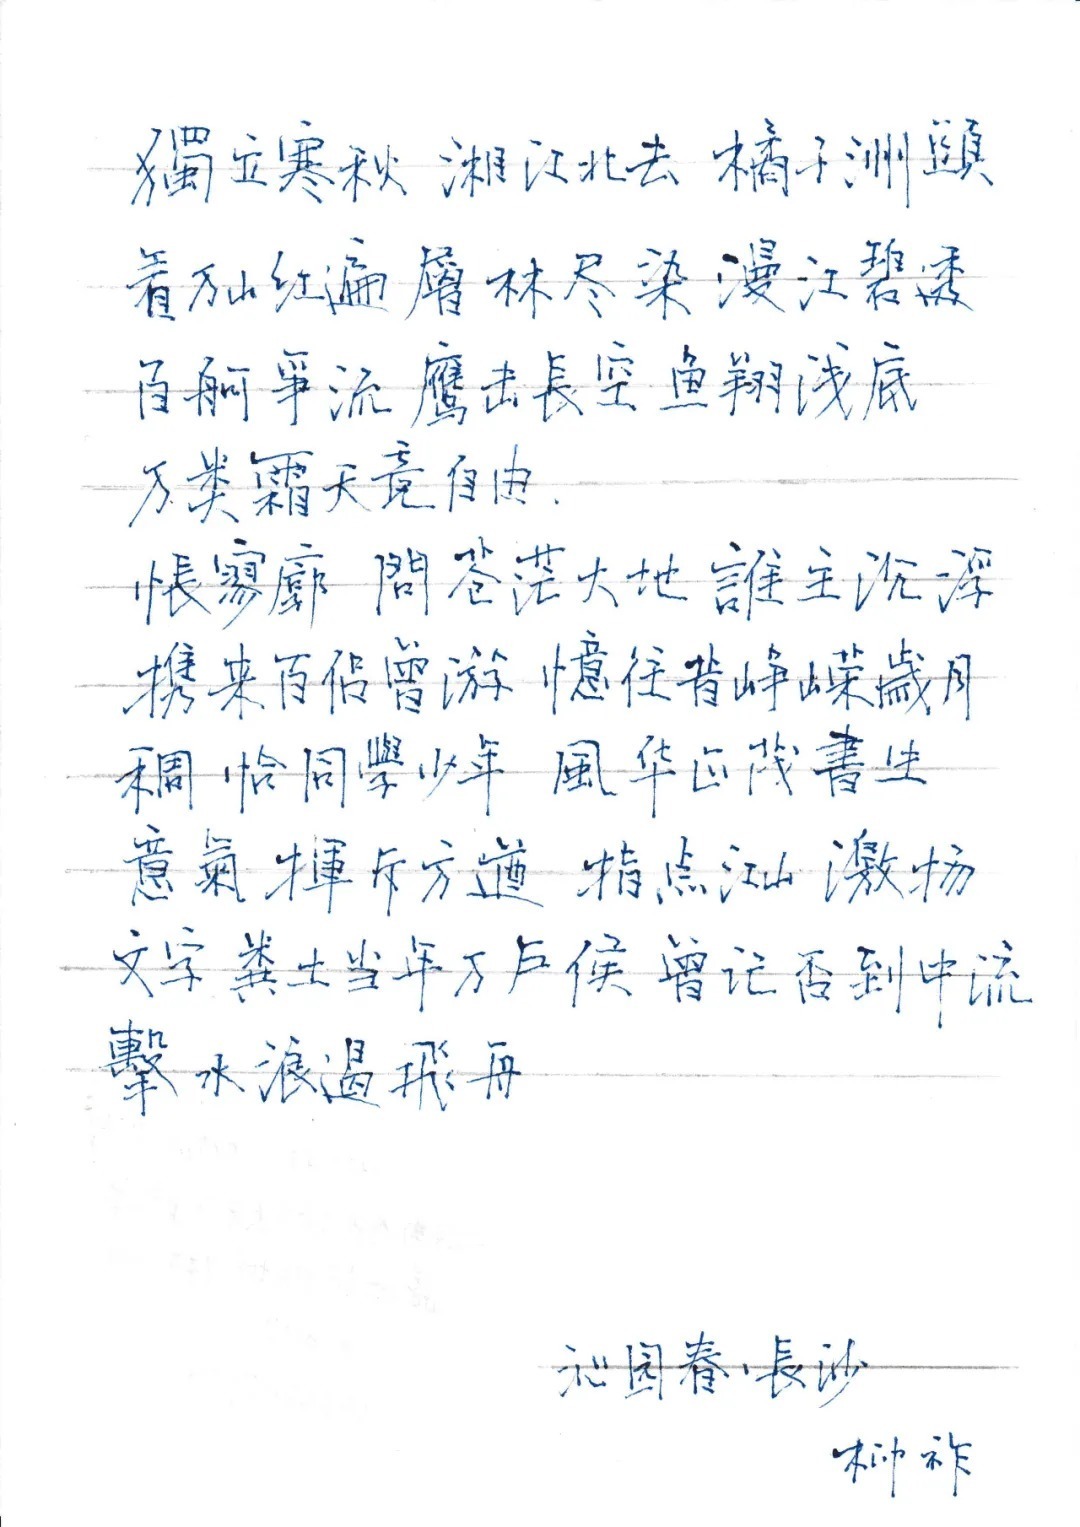 獨立寒秋 湘江北去 橘子洲頭
看万山红遍 層林尽染 漫江碧透
百舸爭流 鹰击長空 鱼翔浅底
万类霜天竞自由.
怅寥廓 問苍茫大地 誰主沉浮
携来百侣曾游 憶往昔峥嵘歲月
稠 恰同學少年 風华正茂書生
意氣 揮斥方遒 指点江山 激扬
文字 粪土当年万户侯 曾记否到中流
擊水浪遏飛舟
沁园春·長沙
柳祚